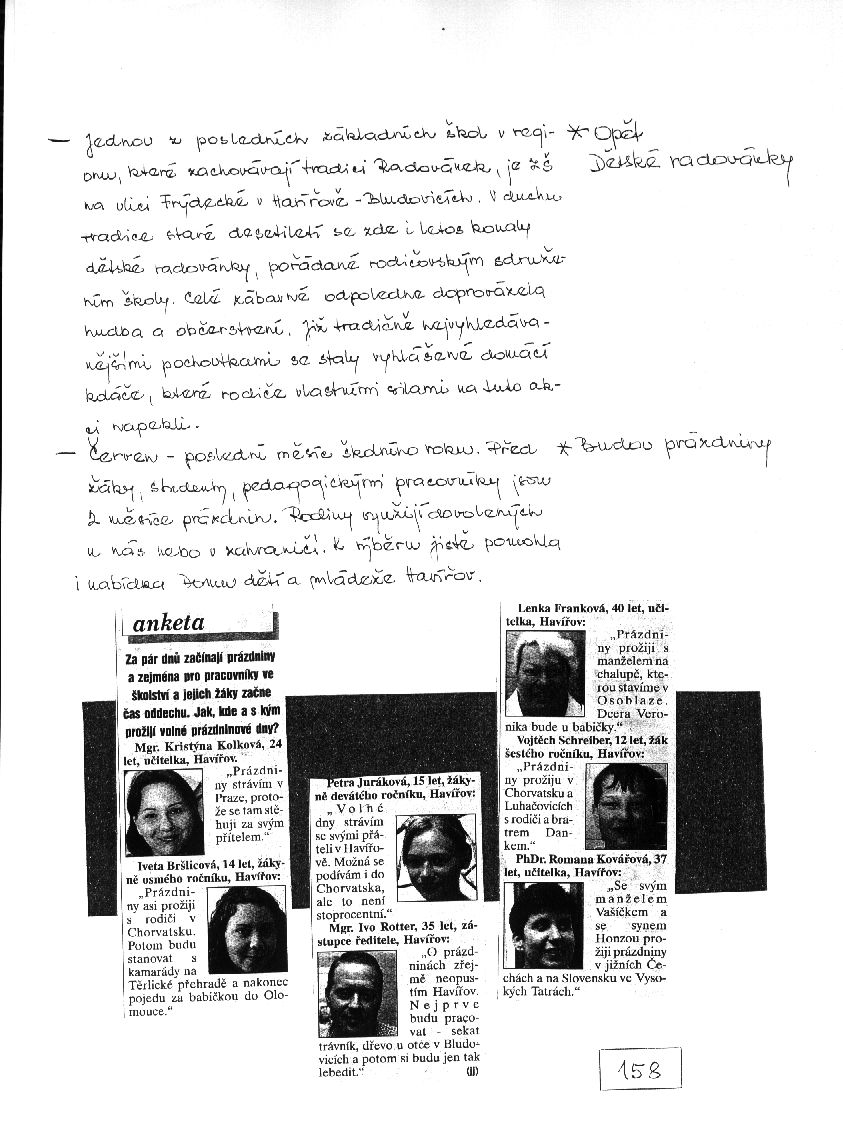 — Jednou z posledních základních škol v regi-
onu, které zachovávají tradici Radovánek, je ZŠ
na ulici Frýdecké v Havířově - Bludovicích. V duchu
tradice staré desetiletí se zde i letos konaly
dětské radovánky, pořádané rodičovským sdruže-
ním školy. Celé zábavné odpoledne doprovázela
hudba a občerstvení. Již tradičně nejvyhledáva-
nějšími pochoutkami se staly vyhlášené domácí
koláče, které rodiče vlastními silami na tuto ak-
ci napekli.
* Opět
Dětské radovánky
— Červen - poslední měsíc školního roku. Před
žáky, studenty, pedagogickými pracovníky jsou
2 měsíce prázdnin. Rodiny využijí dovolených
u nás nebo v zahraničí. K výběru jistě pomohla
i nabídka Domu dětí a mládeže Havířov.
* Budou prázdniny
anketa
Za pár dnů začínají prázdniny
a zejména pro pracovníky ve
školství a jejich žáky začne
čas oddechu. Jak, kde a s kým
prožijí volné prázdninové dny?
Mgr. Kristýna Kolková, 24
let, učitelka, Havířov.
„Prázdni-
ny strávím v
Praze, proto-
že se tam stě-
huji za svým
přítelem.“
Iveta Bršlicová, 14 let, žáky-
ně osmého ročníku, Havířov:
„Prázdni-
ny asi prožiji
s rodiči v
Chorvatsku.
Potom budu
stanovat s
kamarády na
Těrlické přehradě a nakonec
pojedu za babičkou do Olo-
mouce.“
Petra Juráková, 15 let, žáky-
ně devátého ročníku, Havířov:
„Volné
dny strávím
se svými přá-
teli v Havířo-
vě. Možná se
podívám i do
Chorvatska,
ale to není
stoprocentní.“
Mgr. Ivo Rotter, 35 let, zá-
stupce ředitele, Havířov:
„O prázd-
ninách zřej-
mě neopus-
tím Havířov.
Nejprve
budu praco-
vat - sekat
trávník, dřevo u otce v Bludo-
vicích a potom si budu jen tak
lebedit.“ (jj)
Lenka Franková, 40 let, uči-
telka, Havířov:
„Prázdni-
ny prožiji s
manželem na
chalupě, kte-
rou stavíme v
Osoblaze.
Dcera Vero-
nika bude u babičky.“
Vojtěch Schreiber, 12 let, žák
šestého ročníku, Havířov:
„Prázdni-
ny prožiju v
Chorvatsku a
Luhačovicích
s rodiči a bra-
trem Dan-
kem.“
PhDr. Romana Kovářová, 37
let, učitelka, Havířov:
„Se svým
manželem
Vašíčkem a
se synem
Honzou pro-
žiji prázdniny
v jižních Če-
chách a na Slovensku ve Vyso-
kých Tatrách.“
158